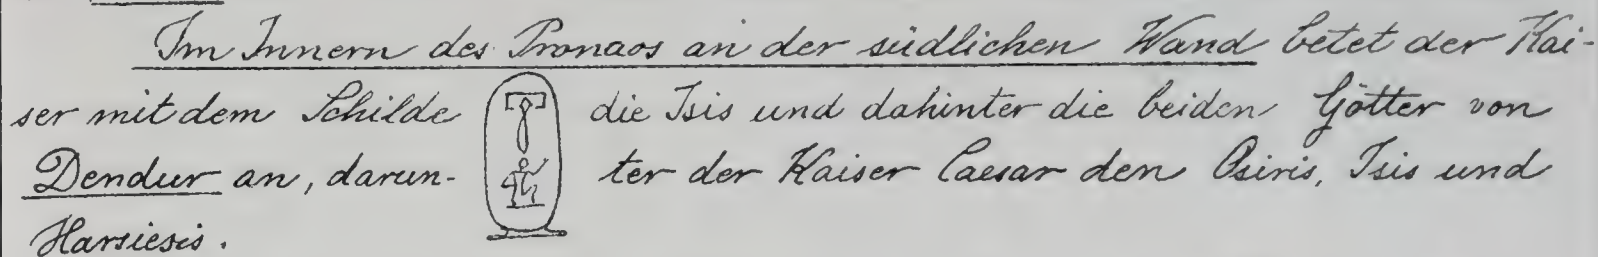 Im Innern des Pronaos an der südlichen Wand betet der Kai-
ser mit dem Schilde die Isis und dahinter die beiden Götter von
Dendur an, darun- ter der Kaiser Caesar den Osiris, Isis und
Harsiesis.